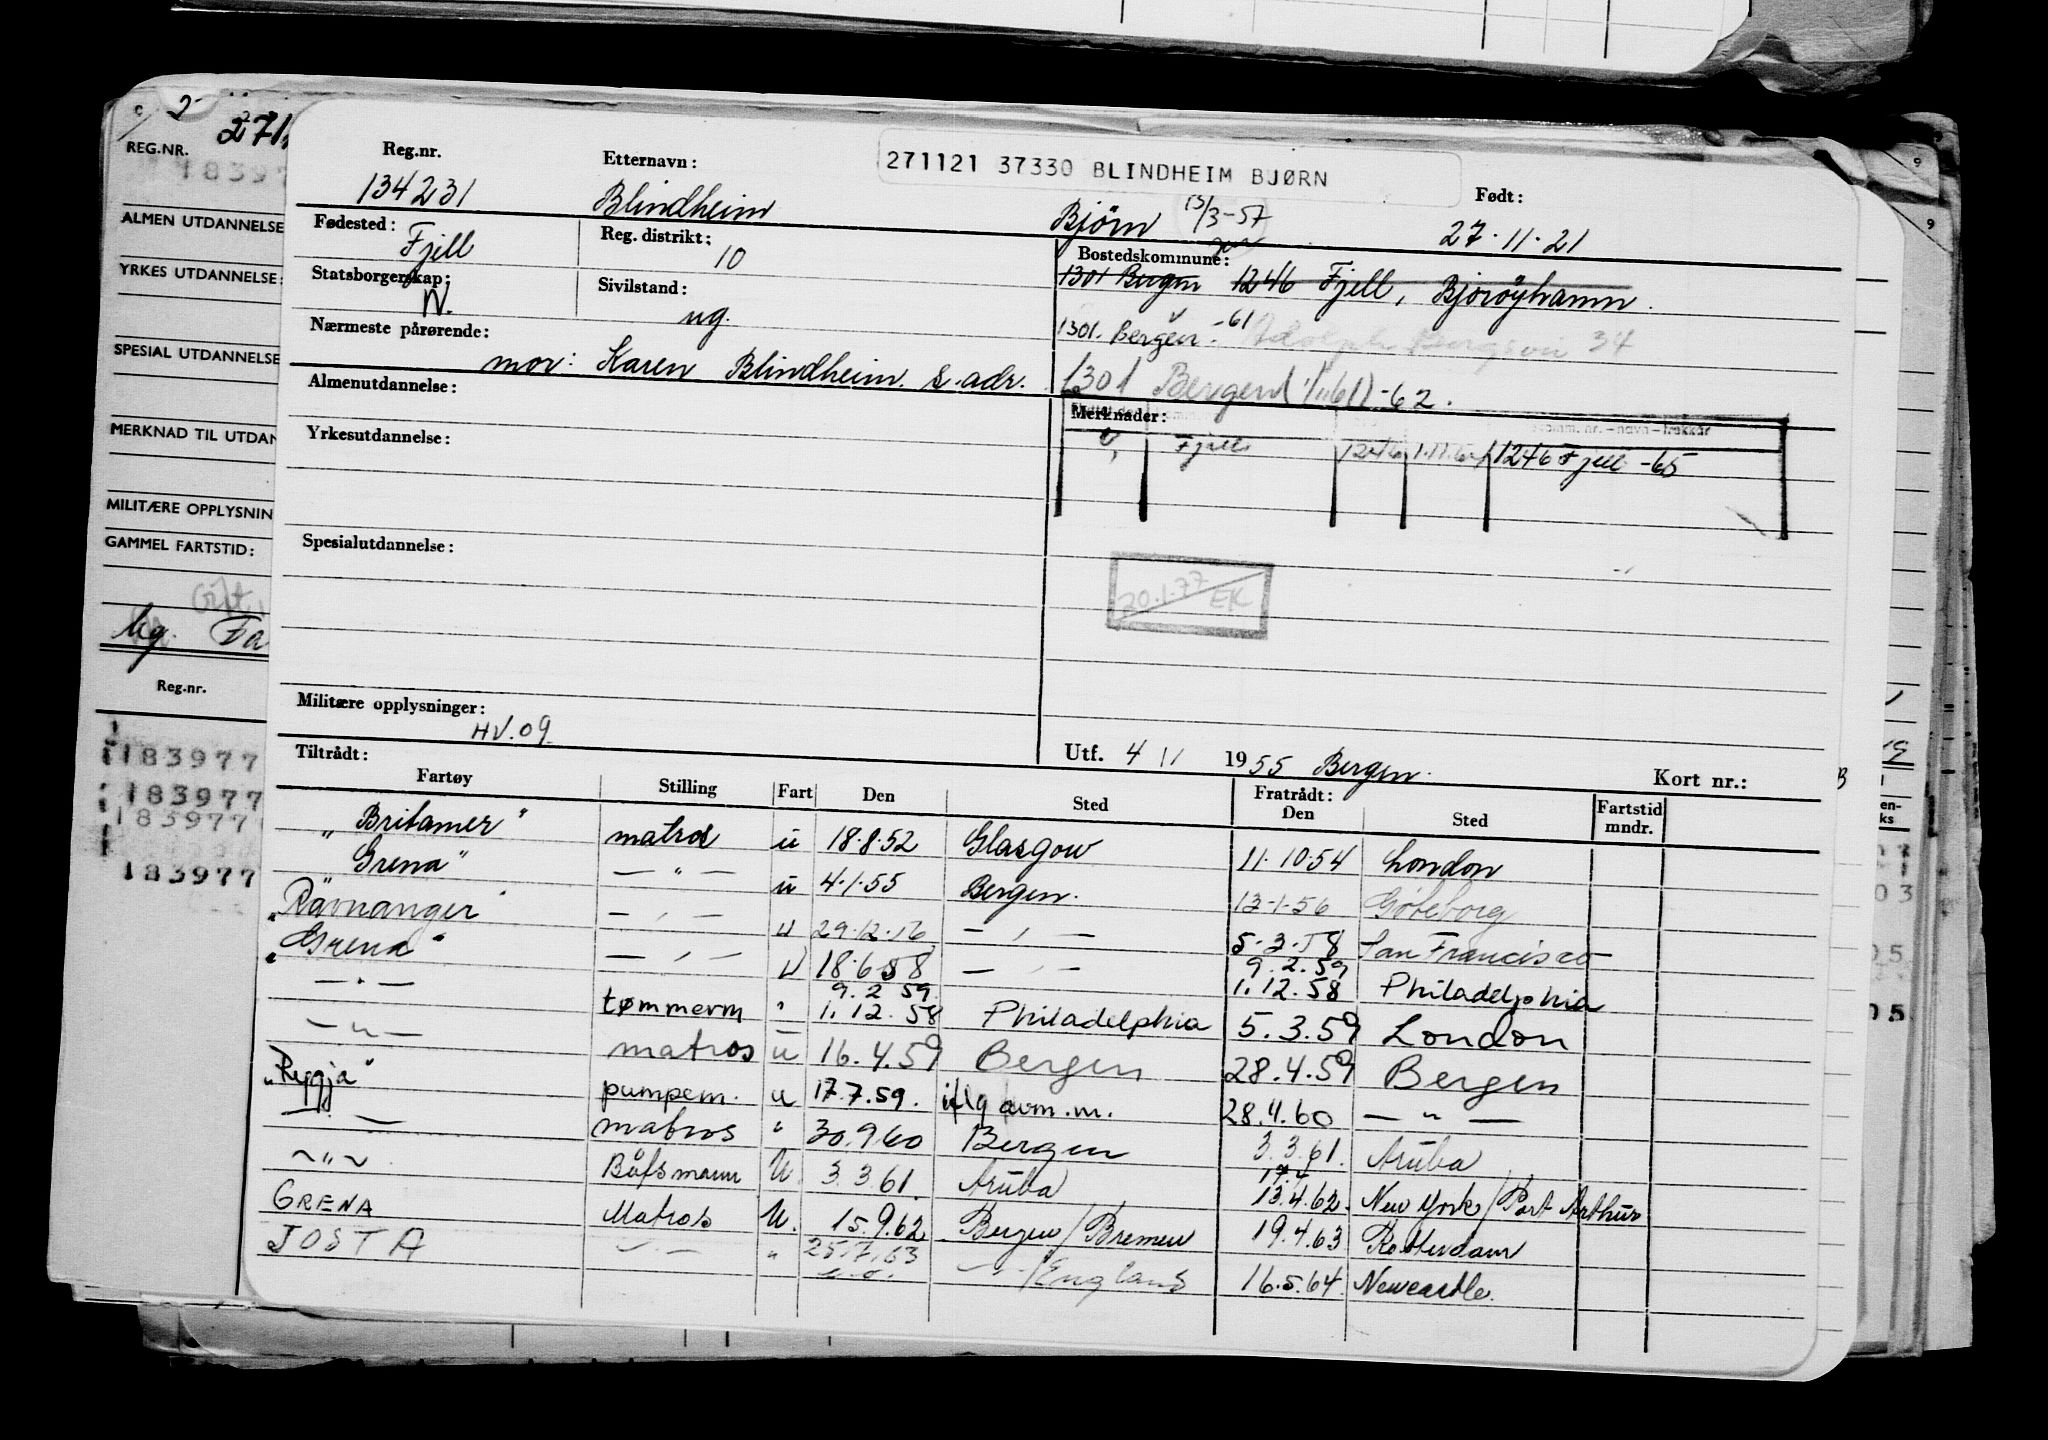 2
271
REG.NR.
18397
ALMEN UTDANNELSE
YRKES UTDANNELSE:
SPESIAL UTDANNELSE
MERKNAD TIL UTDAN
MILITÆRE OPPLYSNIN
GAMMEL FARTSTID:
Ug. Fa
Reg.nr.
183977
183977
183977
183977
Reg.nr. Etternavn: 271121 37330 BLINDHEIM BJØRN Født:
134231 Blindheim Bjørn 13/3-57 27.11.21
Fødested: Fjell Reg. distrikt: 10 Bostedskommune:
1301 Bergen 1246 Fjell, Bjorøyhamn.
Statsborgerskap: N. Sivilstand: ug.
1301. Bergen -61 34
Nærmeste pårørende:
mor: Karen Blindheim. s. adr.
1301 Bergen -62.
Almenutdannelse: Merknader:
Fjell 1246 1246 Fjell -65
Yrkesutdannelse:
Spesialutdannelse:
20.1.77 EK
Militære opplysninger: HV.09
Utf. 4/1 1955 Bergen. Kort nr.:
Tiltrådt: Fratrådt:
Fartøy Stilling Fart Den Sted Den Sted Fartstid mndr.
"Britamer" matros u 18.8.52 Glasgow 11.10.54 London
"Grena" — " — u 4.1.55 Bergen. 13-1-56 Göteborg
"Rävnanger" — " — u 29.12.56 — " — 5.3.58 San Francisco
"Grena" — " — u 18.6.58 — " — 9.2.59 1.12.58 Philadelphia
— " — tømmerm " 9.2.59 1.12.58 Philadelphia 5.3.59 London
— " — matros u 16.4.59 Bergen 28.4.59 Bergen
"Rygja" pumpem. u 17.7.59. iflg avm.m. 28.4.60 — " —
— " — matros " 30.9.60 Bergen 3.3.61. Aruba
~ " ~ Båtsmann U. 3.3.61. Aruba 17.4 13.4.62. New York/Port Arthur
GRENA Matros U. 15.9.62 Bergen/Bremen 19.4.63 Rotterdam
JOSTA — " — " 25.7.63 — " —/England 16.5.64. Newcastle.